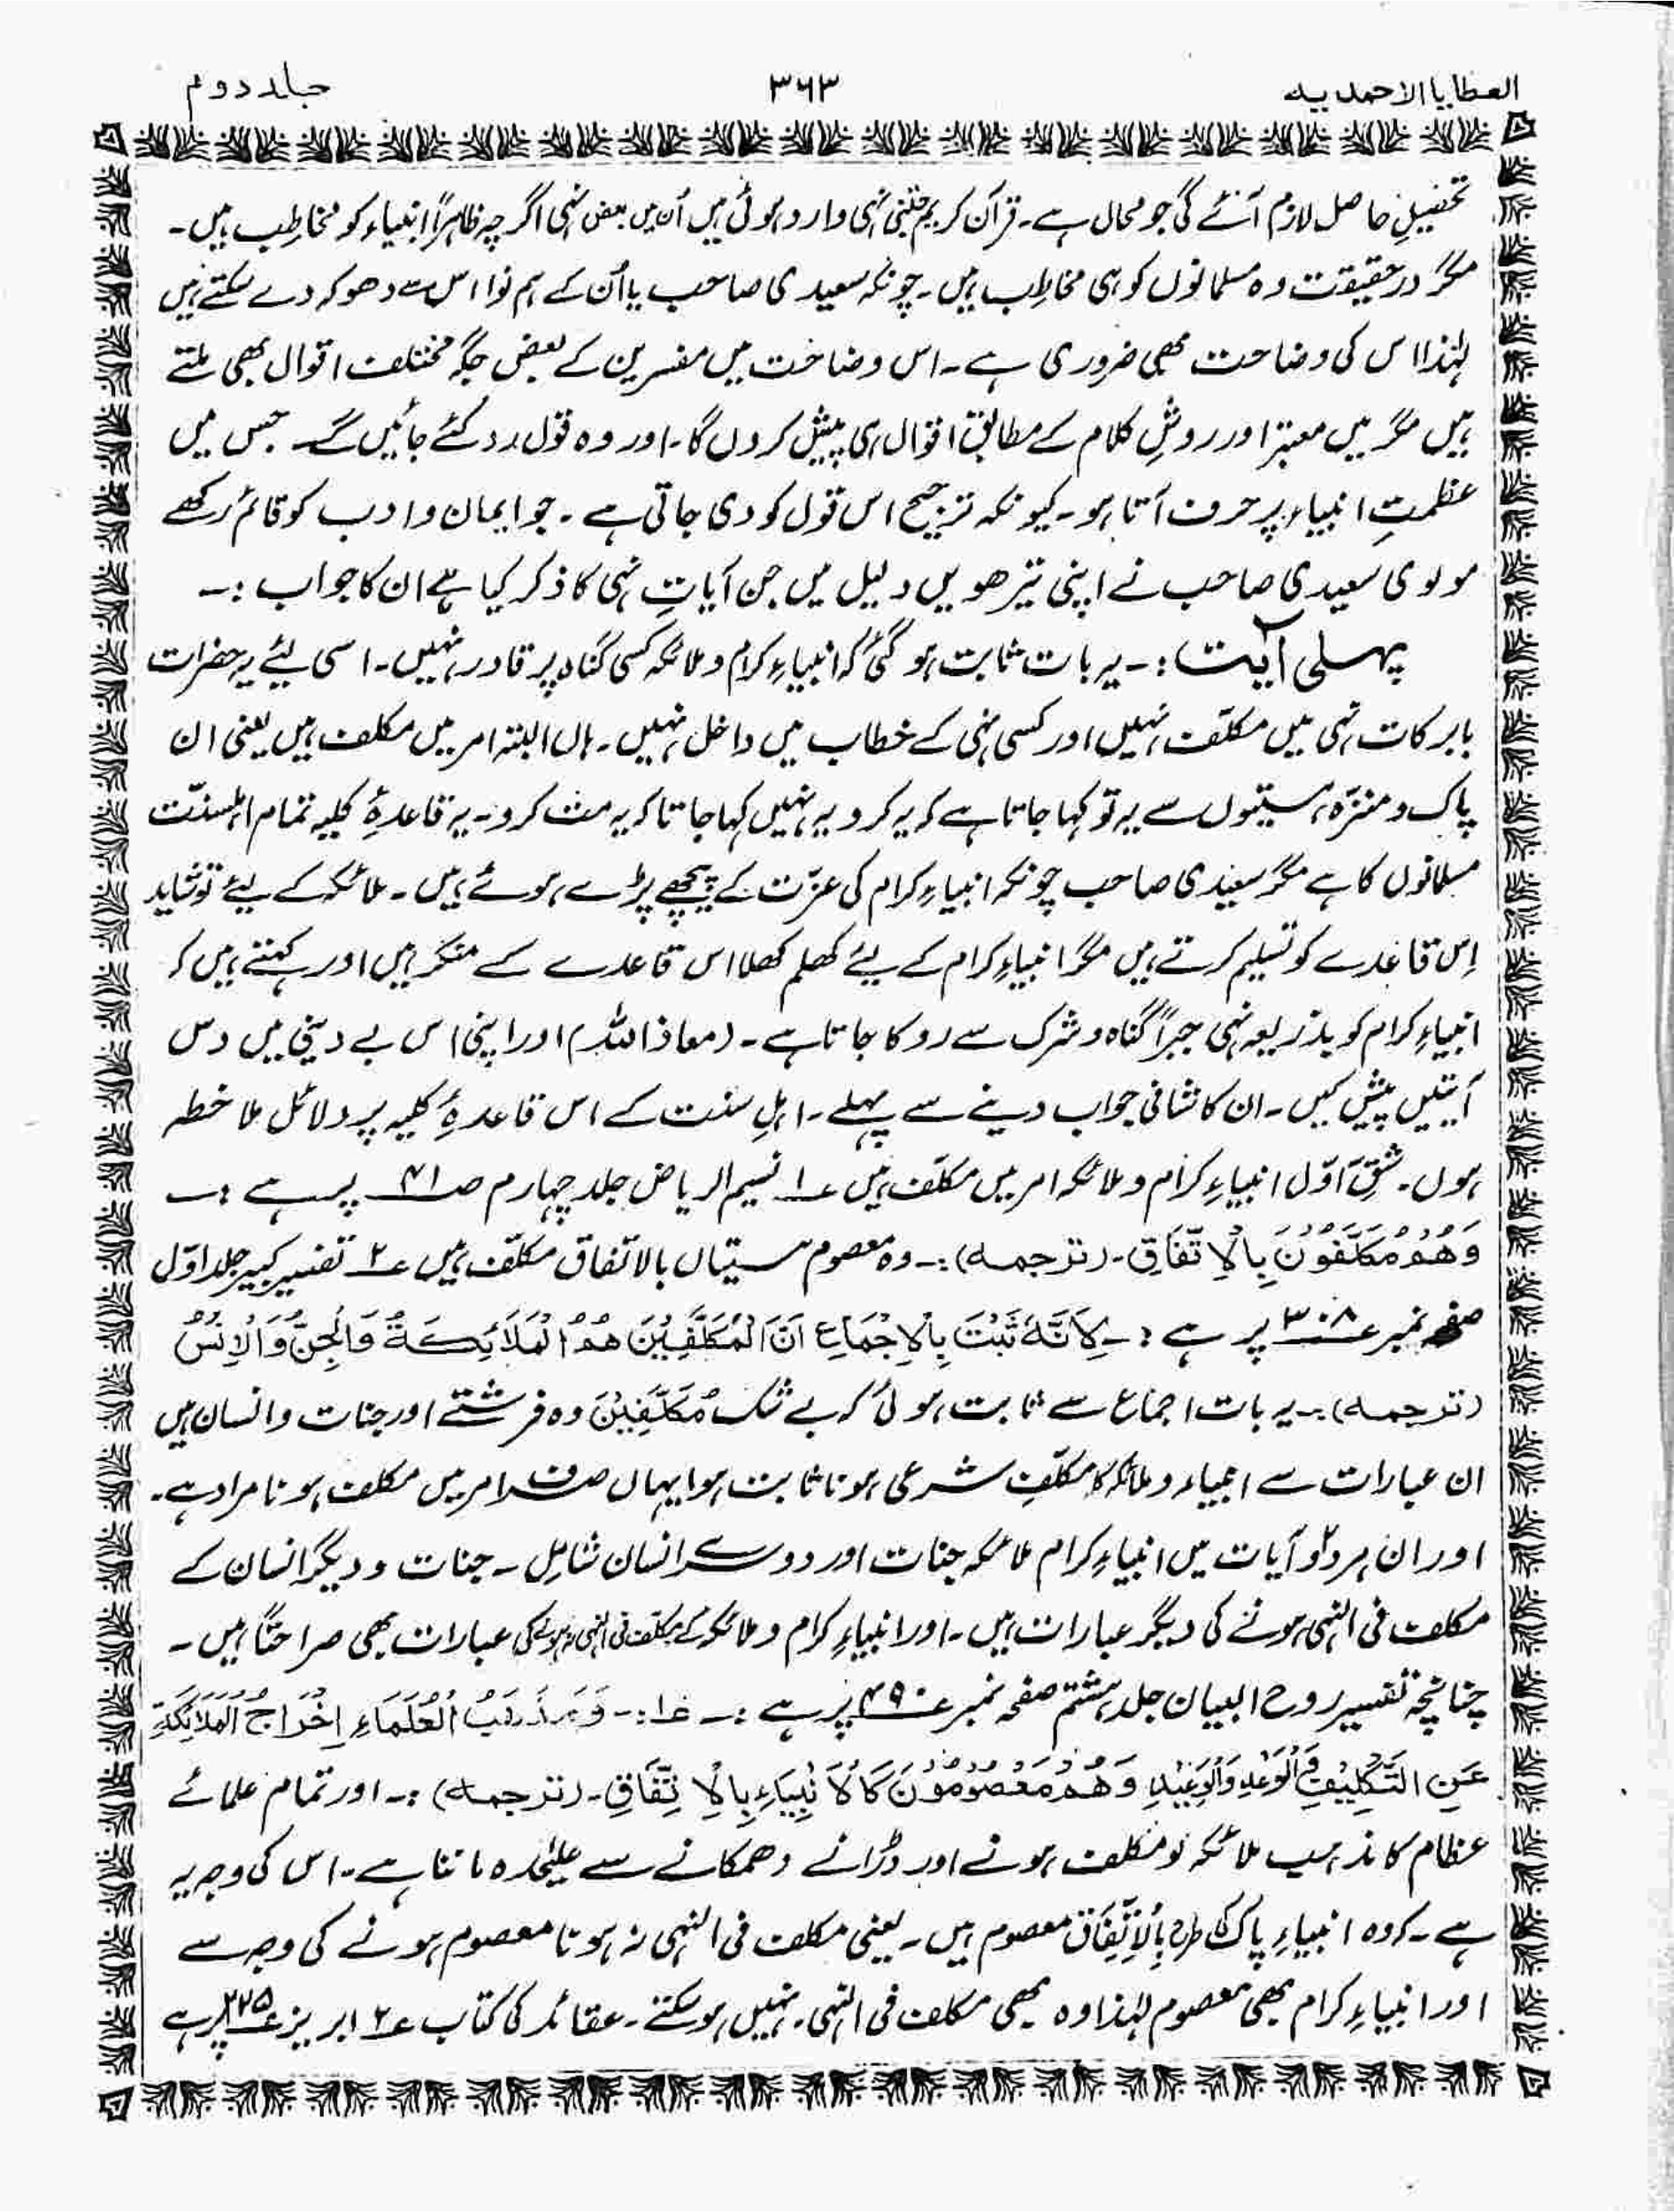 العطایا الاحمدیہ ۳۶۳ جلد دوم
تحصیلِ حاصل لازم آئے گی جو محال ہے۔ قرآن کریم جتنی نہی وارد ہوئی ہیں اُن میں بعض نہی اگرچہ ظاہراً انبیاء کو مخاطِب ہیں۔
مگر درحقیقت وہ مسلمانوں کو ہی مخاطِب ہیں۔ چونکہ سعیدی صاحب یا اُن کے ہم نوا اس سے دھوکہ دے سکتے ہیں
لہٰذا اس کی وضاحت بھی ضروری ہے۔ اس وضاحت میں مفسرین کے بعض جگہ مختلف اقوال بھی ملتے
ہیں مگر میں معتبر اور روشِ کلام کے مطابق اقوال ہی پیش کروں گا۔ اور وہ قول رد کئے جائیں گے۔ جس میں
عظمتِ انبیاء پر حرف آتا ہو۔ کیونکہ ترجیح اس قول کو دی جاتی ہے۔ جو ایمان و ادب کو قائم رکھے
مولوی سعیدی صاحب نے اپنی تیرھویں دلیل میں جن آیاتِ نہی کا ذکر کیا ہے ان کا جواب :۔
پہلی آیت :۔ یہ بات ثابت ہو گئی کہ انبیاءِ کرام و ملائکہ کسی گناہ پر قادر نہیں۔ اسی لیئے یہ حضرات
بابرکات نہی میں مکلّف نہیں اور کسی نہی کے خطاب میں داخل نہیں۔ ہاں البتہ امر میں مکلف ہیں یعنی ان
پاک و منزّہ ہستیوں سے یہ تو کہا جاتا ہے کہ یہ کرو یہ نہیں کہا جاتا کہ یہ مت کرو۔ یہ قاعدۂ کلیہ تمام اہلسنّت
مسلمانوں کا ہے مگر سعیدی صاحب چونکہ انبیاءِ کرام کی عزّت کے پیچھے پڑے ہوئے ہیں۔ ملائکہ کے لیئے تو شاید
اِس قاعدے کو تسلیم کرتے ہیں مگر انبیاءِ کرام کے لیئے کھلم کھلا اس قاعدے کے منکر ہیں اور کہتے ہیں کہ
انبیاءِ کرام کو بذریعہ نہی جبراً گناہ و شرک سے روکا جاتا ہے۔ (معاذ اللہ) اور اپنی اس بے دینی میں دس
آیتیں پیش کیں۔ ان کا شافی جواب دینے سے پہلے۔ اہلِ سنت کے اس قاعدۂ کلیہ پر دلائل ملاحظہ
ہوں۔ شقِّ اوّل انبیاءِ کرام و ملائکہ امر میں مکلّف ہیں ؏۱ نسیم الریاض جلد چہارم ص۴۱ پر ہے :۔
وَهُمْ مُكَلَّفُوْنَ بِالْاِتِّفَاقِ۔ (ترجمہ):۔ وہ معصوم ہستیاں بالاتّفاق مکلّف ہیں ؏۲ تفسیر کبیر جلد اوّل
صفحہ نمبر ؏۳۰۸ پر ہے :۔ لِاَنَّهٗ ثَبَتَ بِالْاِجْمَاعِ اَنَّ الْمُكَلَّفِيْنَ هُمُ الْمَلَائِكَةُ وَالْجِنُّ وَالْاِنْسُ
(ترجمہ):۔ یہ بات اجماع سے ثابت ہوئی کہ بے شک مُکَلَّفِیْنَ وہ فرشتے اور جنات و انسان ہیں
ان عبارات سے انبیاء و ملائکہ کا مکلّفِ شرعی ہونا ثابت ہوا یہاں صرف امر میں مکلف ہونا مراد ہے۔
اور ان ہر دو آیات میں انبیاءِ کرام ملائکہ جنات اور دوسرے انسان شامِل۔ جنات و دیگر انسان کے
مکلف فی النہی ہونے کی دیگر عبارات ہیں۔ اور انبیاءِ کرام و ملائکہ کے مکلف فی النہی نہ ہونے کی عبارات بھی صراحتًا ہیں۔
چنانچہ تفسیر روح البیان جلد ہشتم صفحہ نمبر ؏۴۹۰ پر ہے :۔ ؏۱:۔ وَمَذْهَبُ الْعُلَمَاءِ اِخْرَاجُ الْمَلَائِكَةِ
عَنِ التَّكْلِيْفِ وَالْوَعْدِ وَالْوَعِيْدِ وَهُمْ مَعْصُوْمُوْنَ كَالْاَنْبِيَاءِ بِالْاِتِّفَاقِ۔ (ترجمہ):۔ اور تمام علمائے
عظام کا مذہب ملائکہ کو مکلف ہونے اور ڈرانے دھمکانے سے علیٰحدہ ماننا ہے۔ اس کی وجہ یہ
ہے۔ کہ وہ انبیاءِ پاک کی طرح بِالْاِتِّفَاق معصوم ہیں۔ یعنی مکلف فی النہی نہ ہونا معصوم ہونے کی وجہ سے
اور انبیاءِ کرام بھی معصوم لہٰذا وہ بھی مکلف فی النہی۔ نہیں ہو سکتے۔ عقائد کی کتاب ؏۲ ابریز پر ہے